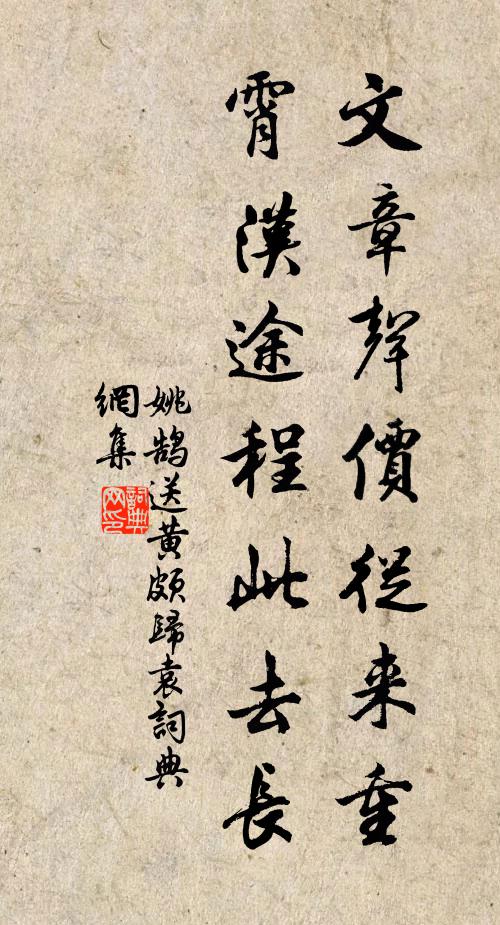 文章聲價從来重
霄漢途程此去長
姚鵠送黃頗歸袁詞典
網集
詞典
网印